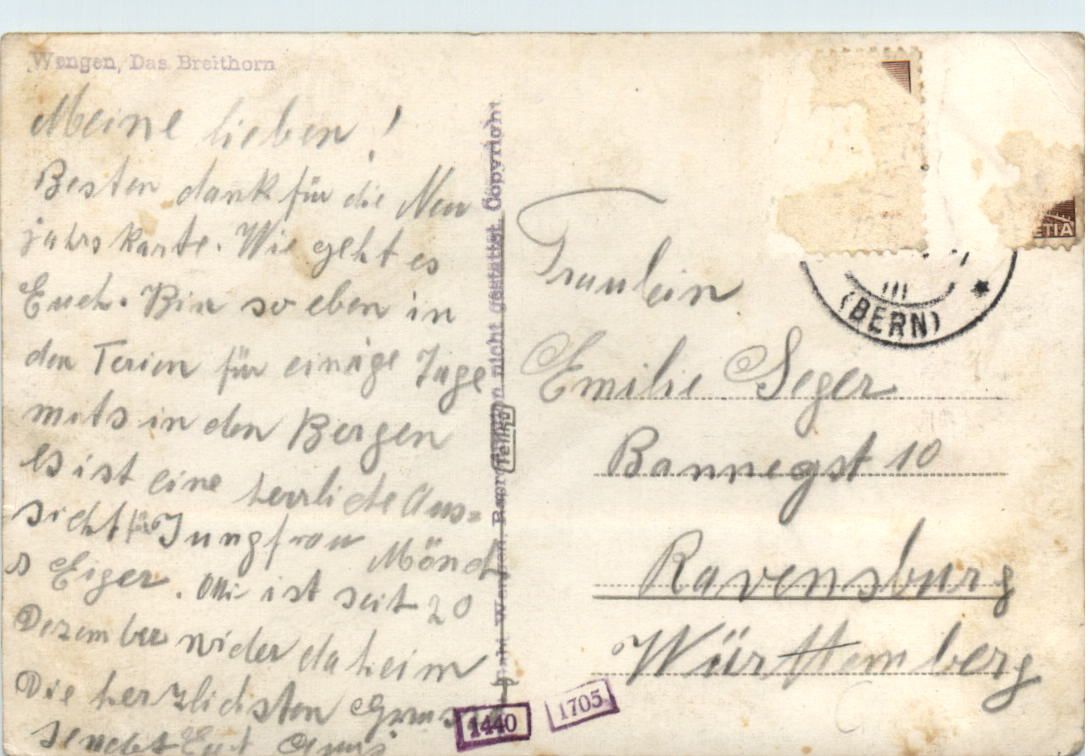 Wengen, Das Breithorn
Meine lieben!
Besten dank für die Neu
jahrskarte. Wie geht es
Euch. Bin so eben in
den Ferien für einige Tage
in den Bergen
Es ist eine herrliche Aus=
sicht Jungfrau Mönch
Eiger. ist seit 20
Dezember wider daheim
Die herzlichsten Grüsse
sendet Euch
nicht gestattet. Copyright
Tellko
Fräulein
Emilie Seger
Bannegst 10
Ravensburg
Württemberg
(BERN)
ETIA
1440
1705